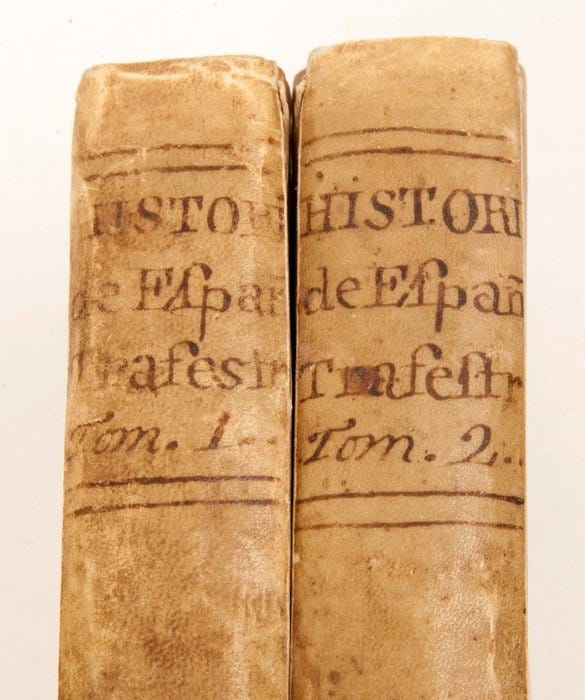 HISTORI
de Eſpañ
Traſestr
Tom. 1..
HISTORI
de Eſpañ
Traſeſtr
Tom. 2..